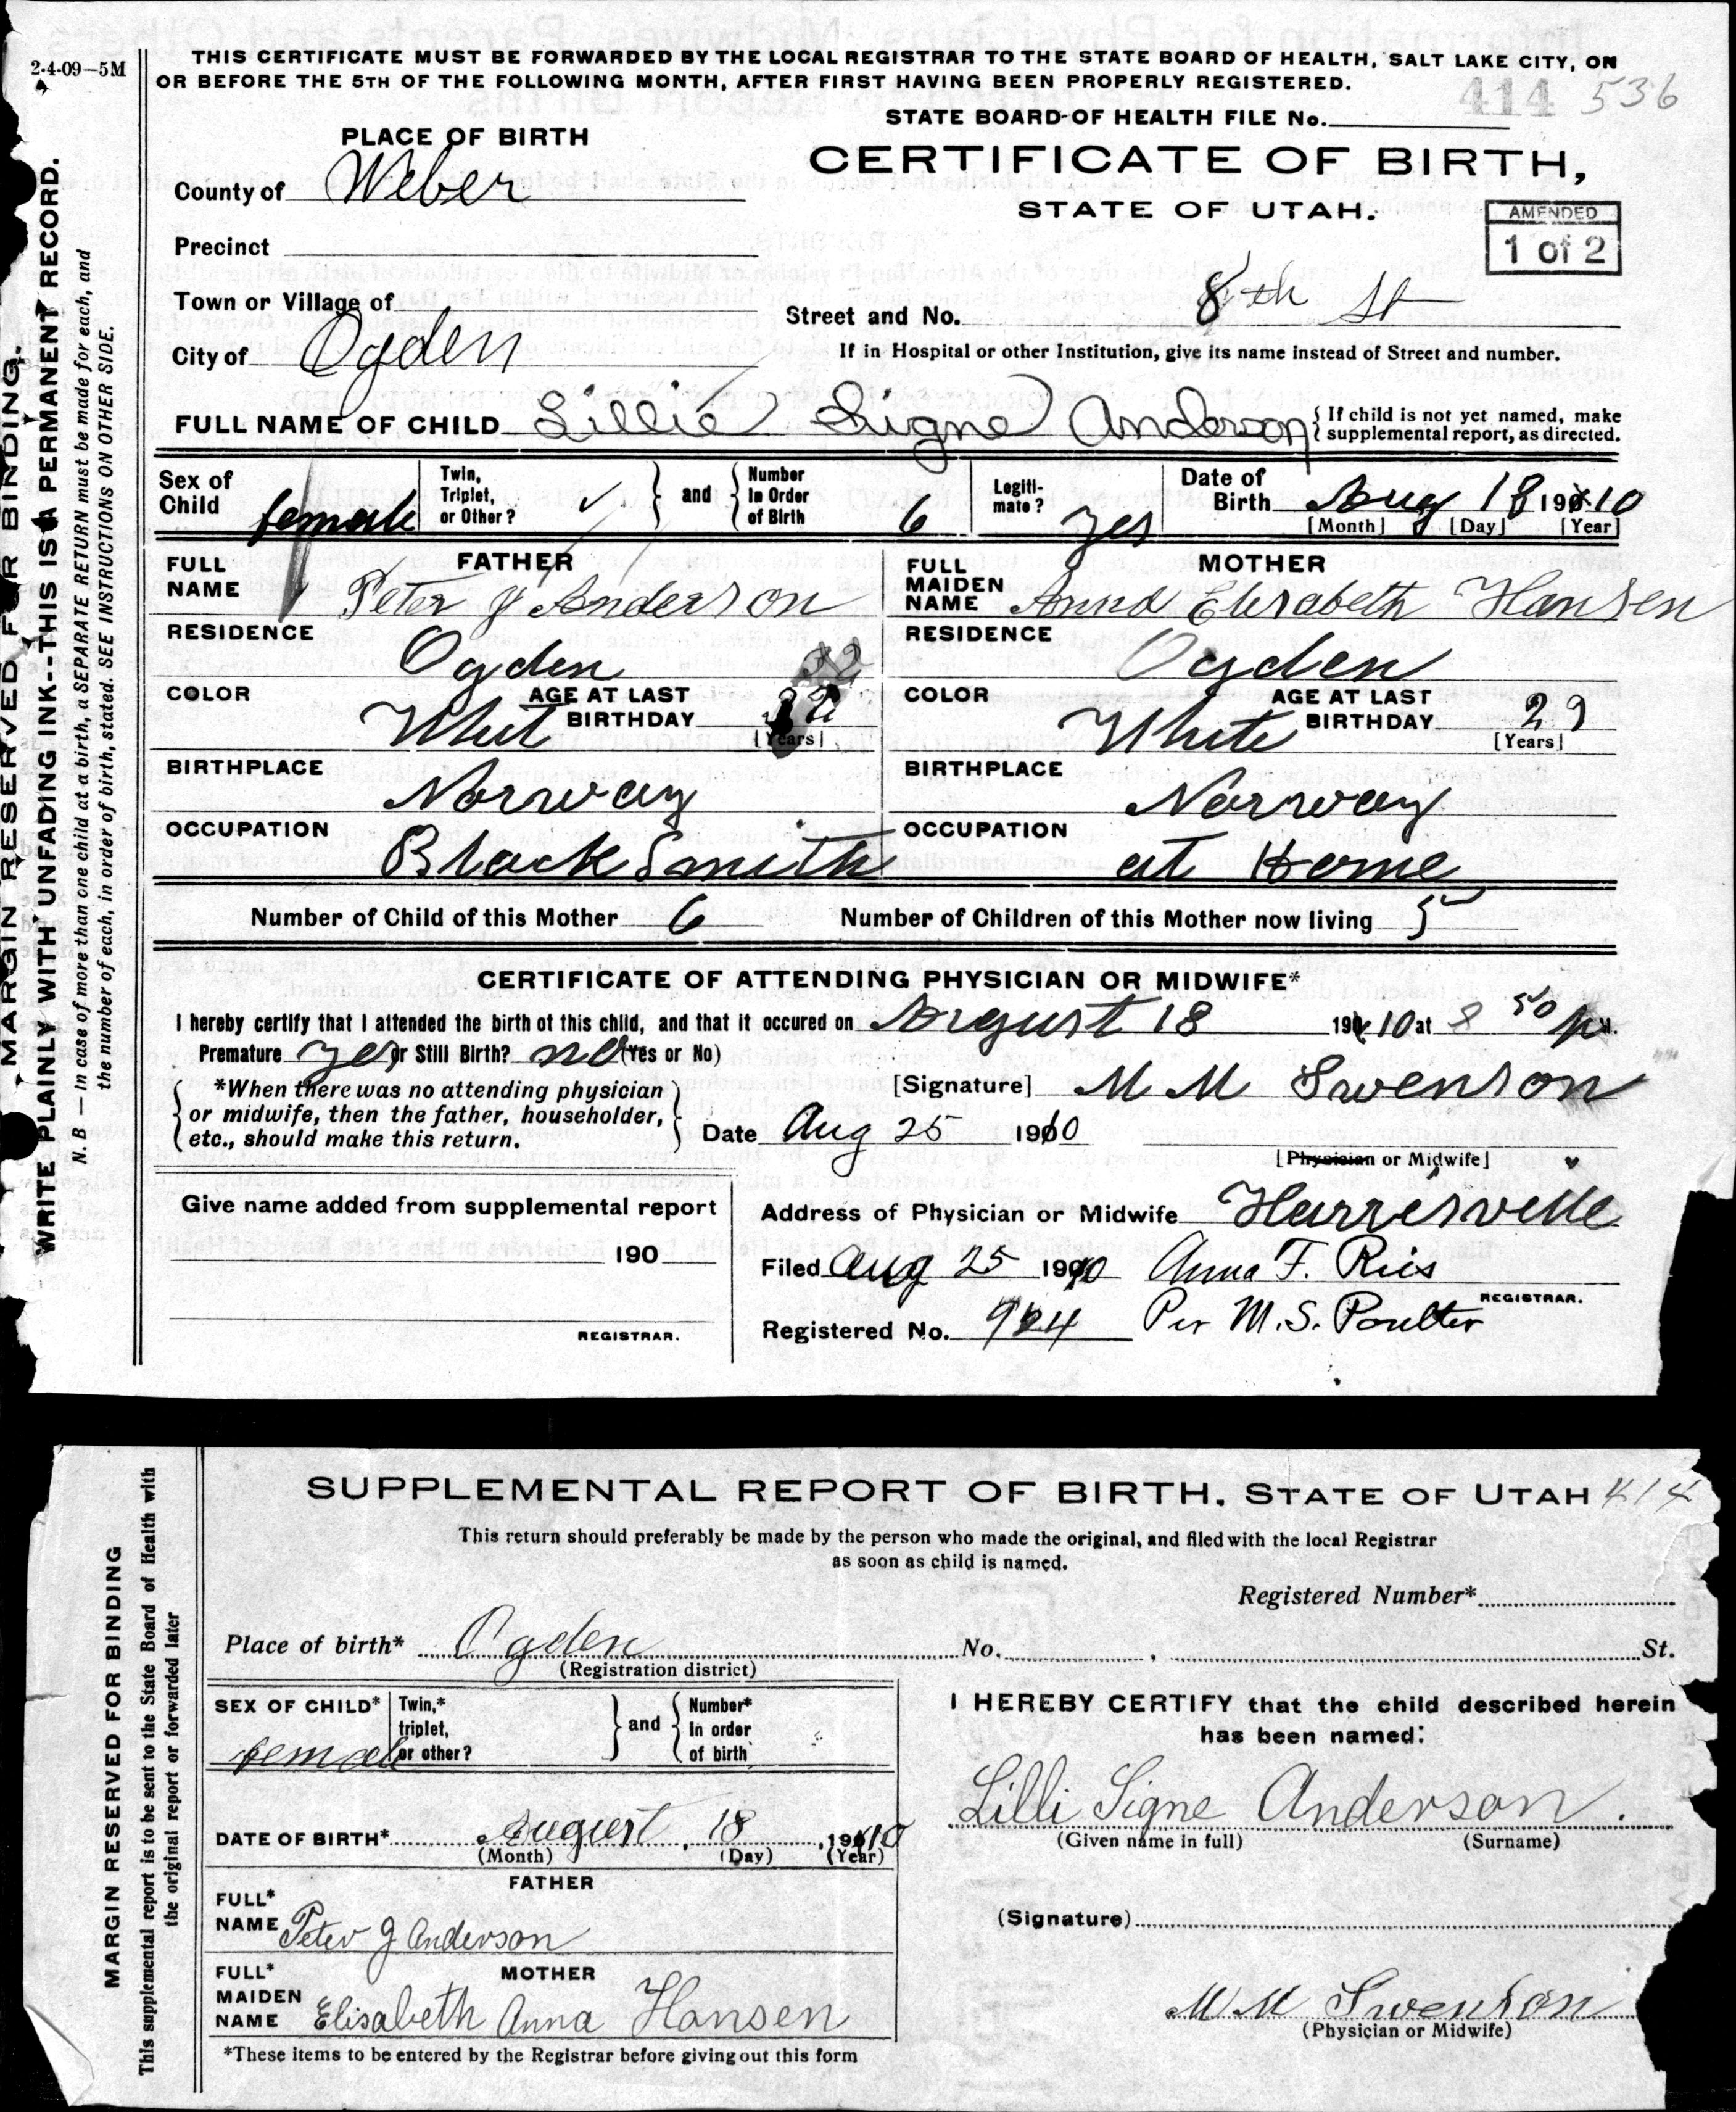 2-4-09–5M
THIS CERTIFICATE MUST BE FORWARDED BY THE LOCAL REGISTRAR TO THE STATE BOARD OF HEALTH, SALT LAKE CITY, ON
OR BEFORE THE 5TH OF THE FOLLOWING MONTH, AFTER FIRST HAVING BEEN PROPERLY REGISTERED.
414 536
STATE BOARD OF HEALTH FILE No.
PLACE OF BIRTH
CERTIFICATE OF BIRTH,
STATE OF UTAH.
AMENDED
1 of 2
County of Weber
Precinct
Town or Village of
Street and No. 8th St
City of Ogden
If in Hospital or other Institution, give its name instead of Street and number.
FULL NAME OF CHILD Lillie Signe Anderson
If child is not yet named, make
supplemental report, as directed.
Sex of Child female
Twin, Triplet, or Other? ✓ and Number In Order of Birth 6
Legiti-mate? yes
Date of Birth Aug 18 1910
[Month] [Day] [Year]
FATHER
FULL NAME Peter J Anderson
RESIDENCE Ogden
COLOR Whit
AGE AT LAST BIRTHDAY 32
[Years]
BIRTHPLACE Norway
OCCUPATION Black Smith
MOTHER
FULL MAIDEN NAME Anna Elisabeth Hansen
RESIDENCE Ogden
COLOR White
AGE AT LAST BIRTHDAY 29
[Years]
BIRTHPLACE Norway
OCCUPATION at Home
Number of Child of this Mother 6 Number of Children of this Mother now living 5
CERTIFICATE OF ATTENDING PHYSICIAN OR MIDWIFE*
I hereby certify that I attended the birth of this child, and that it occured on August 18 1910 at 8 50 p M.
Premature yes or Still Birth? no (Yes or No)
*When there was no attending physician
or midwife, then the father, householder,
etc., should make this return.
[Signature] M M Swenson
Date Aug 25 1910
[Physician or Midwife]
Give name added from supplemental report
190
REGISTRAR.
Address of Physician or Midwife Harrisville
Filed Aug 25 1910 Anna F. Ries
REGISTRAR.
Registered No. 924 Per M.S. Poulter
MARGIN RESERVED FOR BINDING.
WRITE PLAINLY WITH UNFADING INK--THIS IS A PERMANENT RECORD.
N. B — In case of more than one child at a birth, a SEPARATE RETURN must be made for each, and
the number of each, in order of birth, stated. SEE INSTRUCTIONS ON OTHER SIDE.
SUPPLEMENTAL REPORT OF BIRTH, STATE OF UTAH 414
This return should preferably be made by the person who made the original, and filed with the local Registrar
as soon as child is named.
Registered Number*
Place of birth* Ogden No. , St.
(Registration district)
SEX OF CHILD* female
Twin,* triplet, or other? and Number* In order of birth
DATE OF BIRTH* August , 18 , 1910
(Month) (Day) (Year)
FATHER
FULL* NAME Peter J Anderson
MOTHER
FULL* MAIDEN NAME Elisabeth Anna Hansen
*These items to be entered by the Registrar before giving out this form
I HEREBY CERTIFY that the child described herein
has been named:
Lilli Signe Anderson.
(Given name in full) (Surname)
(Signature)
M M Swenson
(Physician or Midwife)
MARGIN RESERVED FOR BINDING
This supplemental report is to be sent to the State Board of Health with
the original report or forwarded later